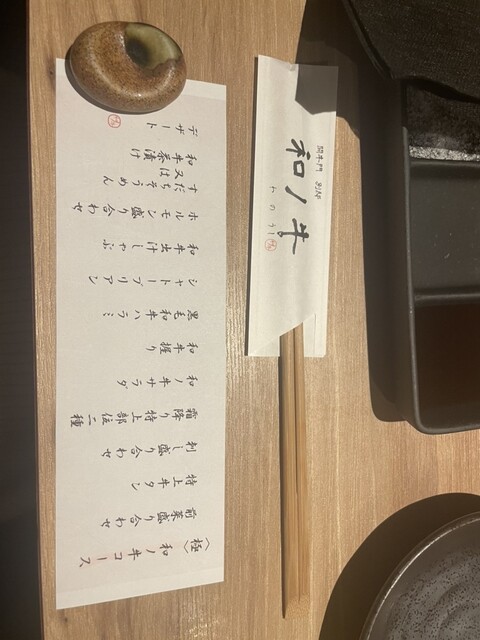 〈極〉和ノ牛コース
前菜盛り合わせ
特上牛タン
刺し盛り合わせ
霜降り特上部位二種
和ノ牛サラダ
和牛握り
黒毛和牛ハラミ
シャトーブリアン
和牛出汁しゃぶ
ホルモン盛り合わせ
すだちそうめん
又は
和牛茶漬け
デザート
和ノ牛
わのうし